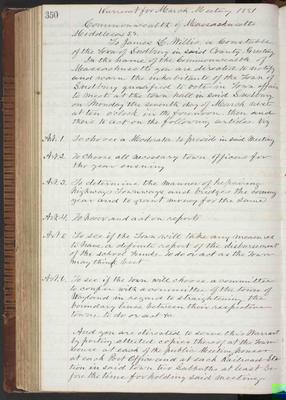 350
Warrant for March Meeting 1881
Commonwealth of Massachusetts
Middlesex ss.
To James L. Willis, a Constable
of the Town of Sudbury in said County, Greeting
In the name of the Commonwealth of
Massachusetts you are directed to notify
and warn the inhabitants of the Town of
Sudbury qualified to vote in Town affairs
to meet at the town hall in said Sudbury
on Monday the seventh day of March next
at ten o'clock in the forenoon, then and
there to act on the following articles viz
Art. 1. To choose a Moderator to preside in said Meeting
Art 2. To choose all necessary town officers for
the year ensuing
Art. 3. To determine the manner of repairing
highways Townways and bridges the coming
year and to grant money for the same
Art. 4. To hear and act on reports
Art. 5 To see if the Town will take any measures
to have a definite report of the disbursement
of the school funds to do or act as the town
may think best
Art. 6. To see if the town will choose a committee
to confer with a committee of the town of
Wayland in regard to straightening the
boundary lines between their respective
towns to do or act &c.
And you are directed to serve this Warrant
by posting attested copies thereof at the Town
house at each of the public Meeting houses
at each Post Office and at each Railroad Sta
tion in said town two Sabbaths at least be
fore the time for holding said meeting